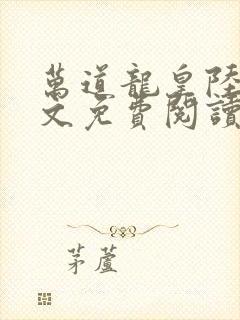 萬道龍皇陸
文免費閱讀
茅蘆